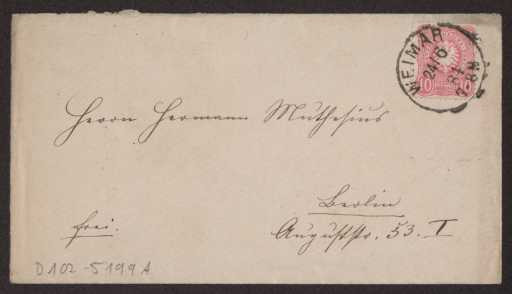 WEIMAR
24/6
84
10 10
Herrn Hermann Muthesius
Berlin
frei.
Auguststr. 53. I
D102-5199A